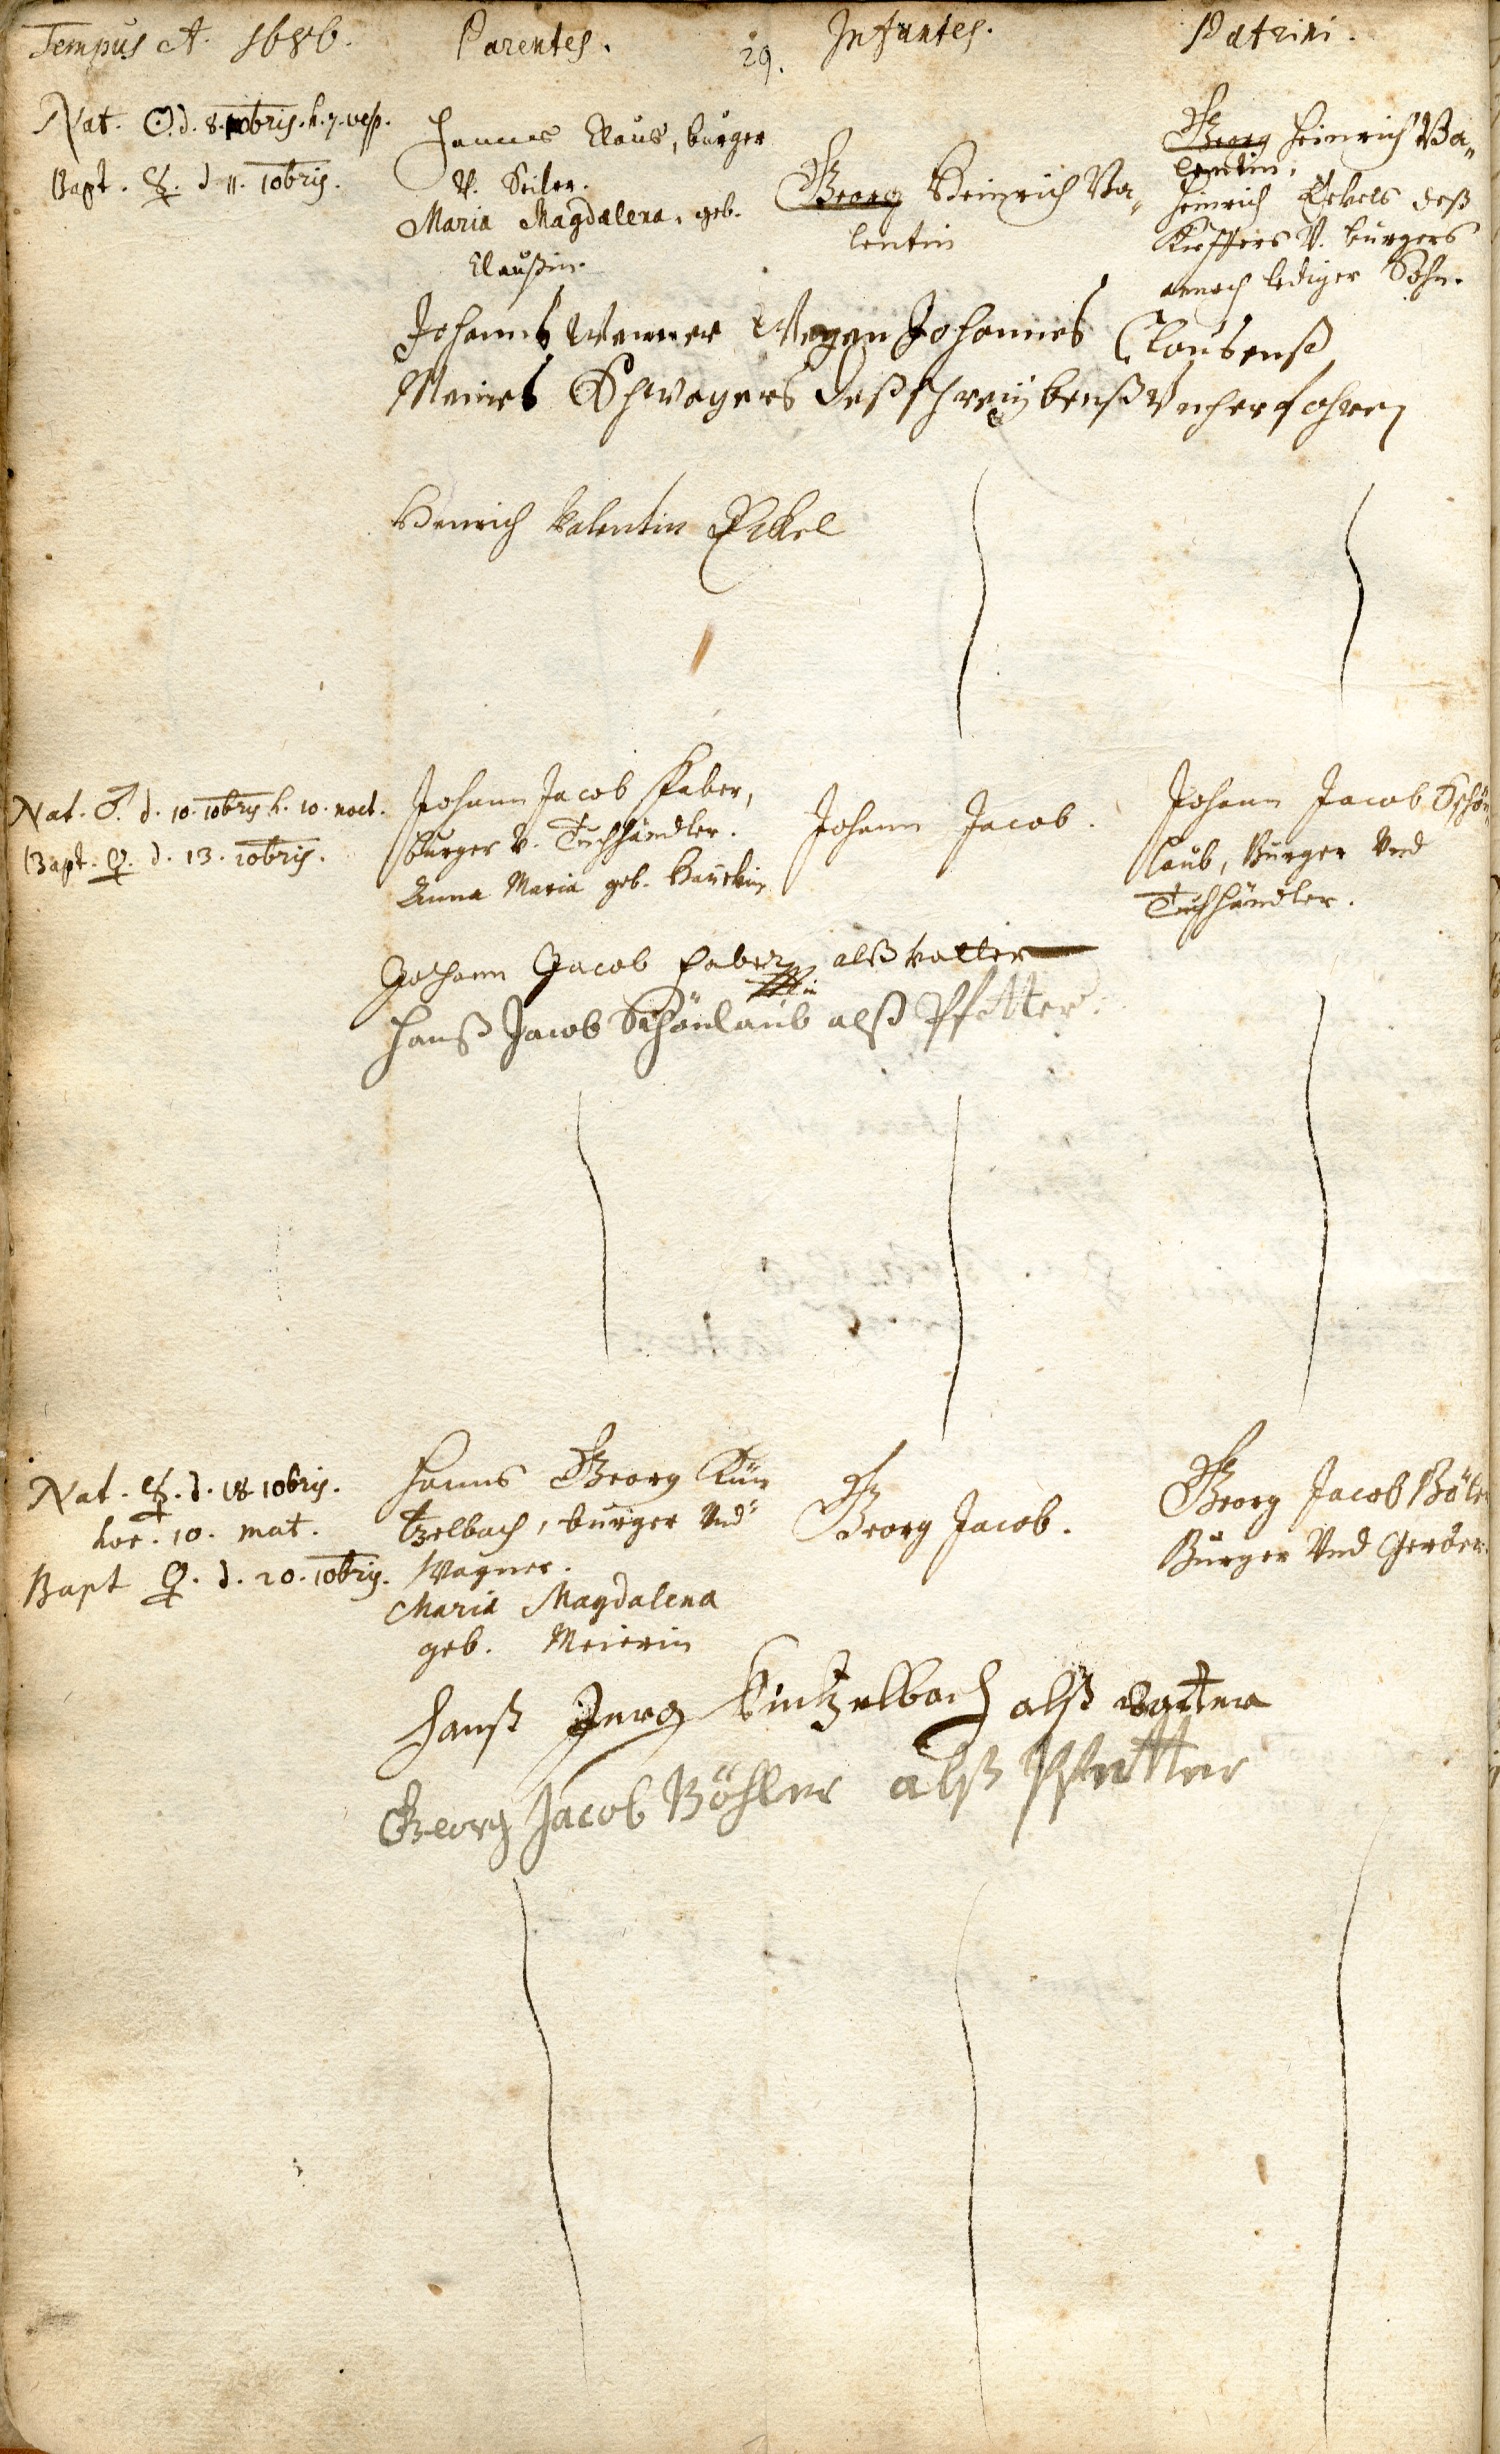 Tempus A. 1686. Parentes. 29. Infantes. Patrini.
Nat. ☉. d. 8. 10bris. h. 7. vesp.
Bapt. ☿. d 11. 10bris.
Hannes Claus, burger
V. Seiler.
Maria Magdalena, geb.
Claußin.
Georg Heinrich Va-
lentin
Georg Heinrich Va-
lentin,
Heinrich Eckels deß
Kieffers V. burgers
annoch lediger Sohn.
Johannes Wegen Johannes Clausenß
Meines Schwagers deß schreibenß Vnerfahren
Henrich Valentin Eckel
Nat. ♂. d. 10. 10bris h. 10. noct.
Bapt. ♀. d. 13. 10bris.
Johann Jacob Faber,
burger V. Tuchhändler.
Anna Maria geb.
Johann Jacob.
Johann Jacob Schön-
laub, Burger Vnd
Tuchhändler.
Johann Jacob Faber alß Vatter
Hanß Jacob Schönlaub alß Pfetter.
Nat. ☿. d. 18 10bris.
hor. 10. mat.
Bapt ♀. d. 20. 10bris.
Hanns Georg Kün
tzelbach, burger Vnd
Wagner.
Maria Magdalena
geb. Meierin
Georg Jacob.
Georg Jacob Böler
Burger Vnd Gerber.
Hanß Jerg Kintzelbach alß Vatter
Georg Jacob Böhler alß Pfetter